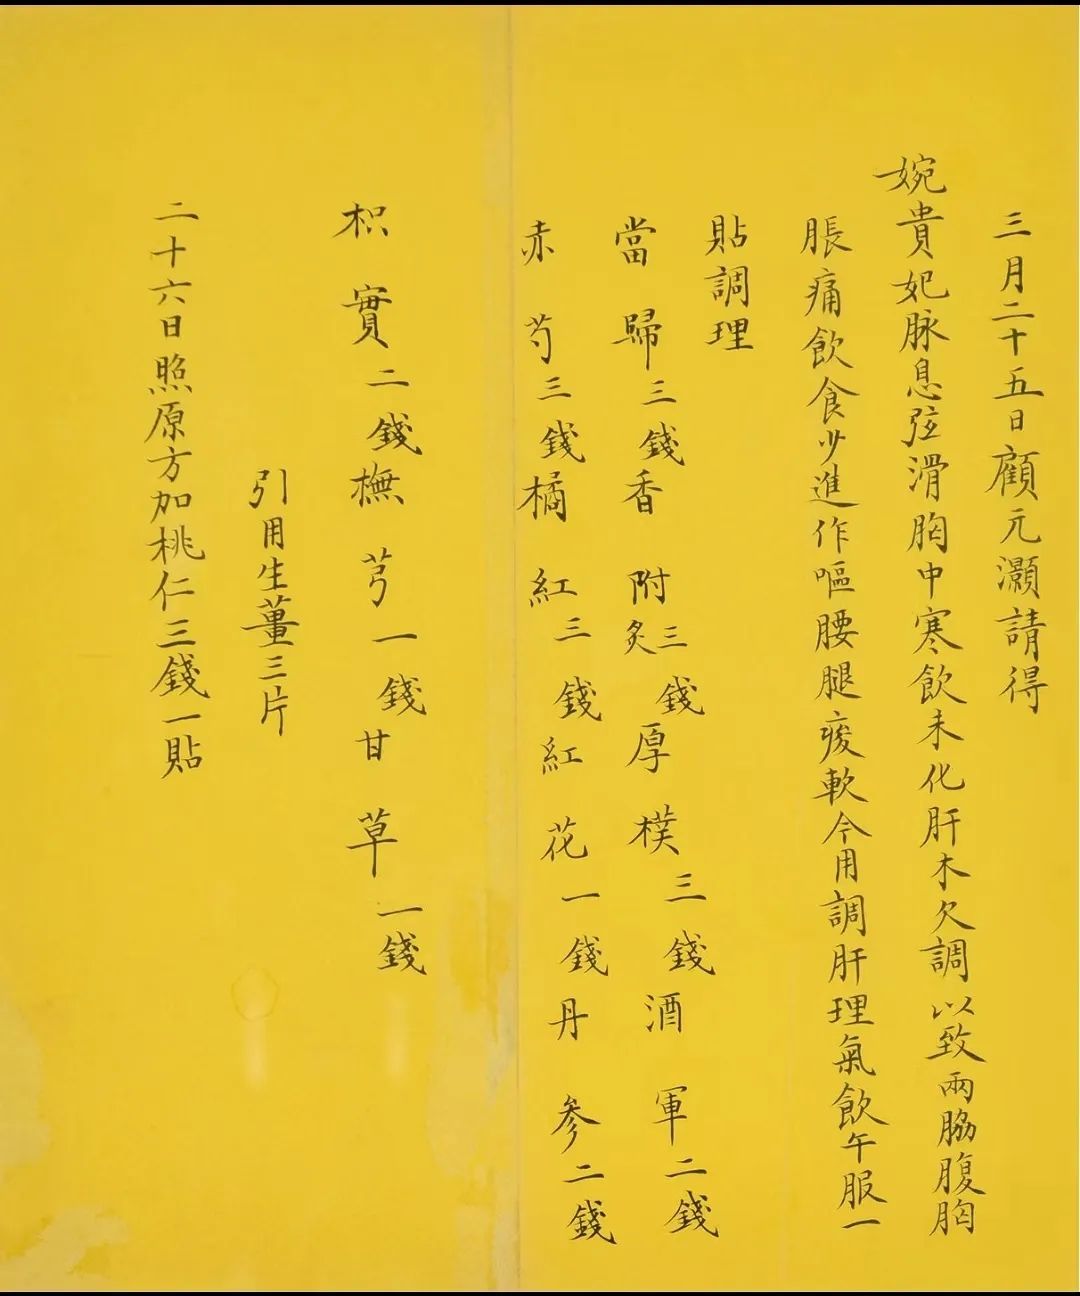 三月二十五日顧元灝請得
婉貴妃脉息弦滑胸中寒飲未化肝木欠調以致兩脇腹胸
脹痛飲食少進作嘔腰腿痠軟今用調肝理氣飲午服一
貼調理
當歸三錢香附三錢炙厚樸三錢酒軍二錢
赤芍三錢橘紅三錢紅花一錢丹參二錢
枳實二錢撫芎一錢甘草一錢
引用生薑三片
二十六日照原方加桃仁三錢一貼